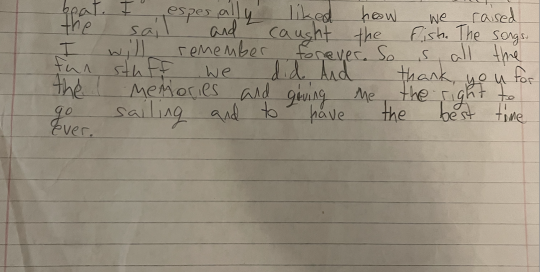 boat. I espesally liked how we raised
the sail and caught the Fish. The songs.
I will remember forever. So is all the
fun stuff we did. And thank, you for
the memories and giving me the right to
go sailing and to have the best time
ever.